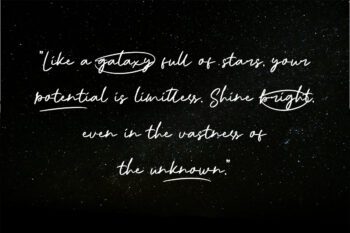 "Like a galaxy full of stars, your
potential is limitless. Shine bright,
even in the vastness of
the unknown."